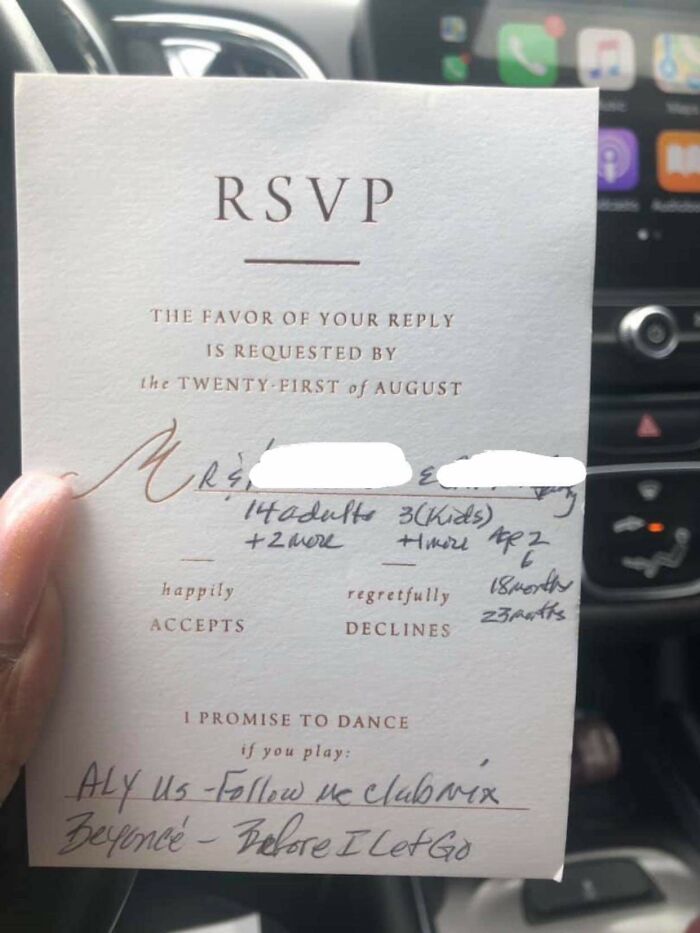 RSVP
THE FAVOR OF YOUR REPLY
IS REQUESTED BY
the TWENTY-FIRST of AUGUST
MR & &
14 adults 3 (Kids)
+ 2 more +1 more Age 2
6
18 months
23 months
happily regretfully
ACCEPTS DECLINES
I PROMISE TO DANCE
if you play:
ALY Us - Follow me club mix
Beyoncé - Before I Let Go